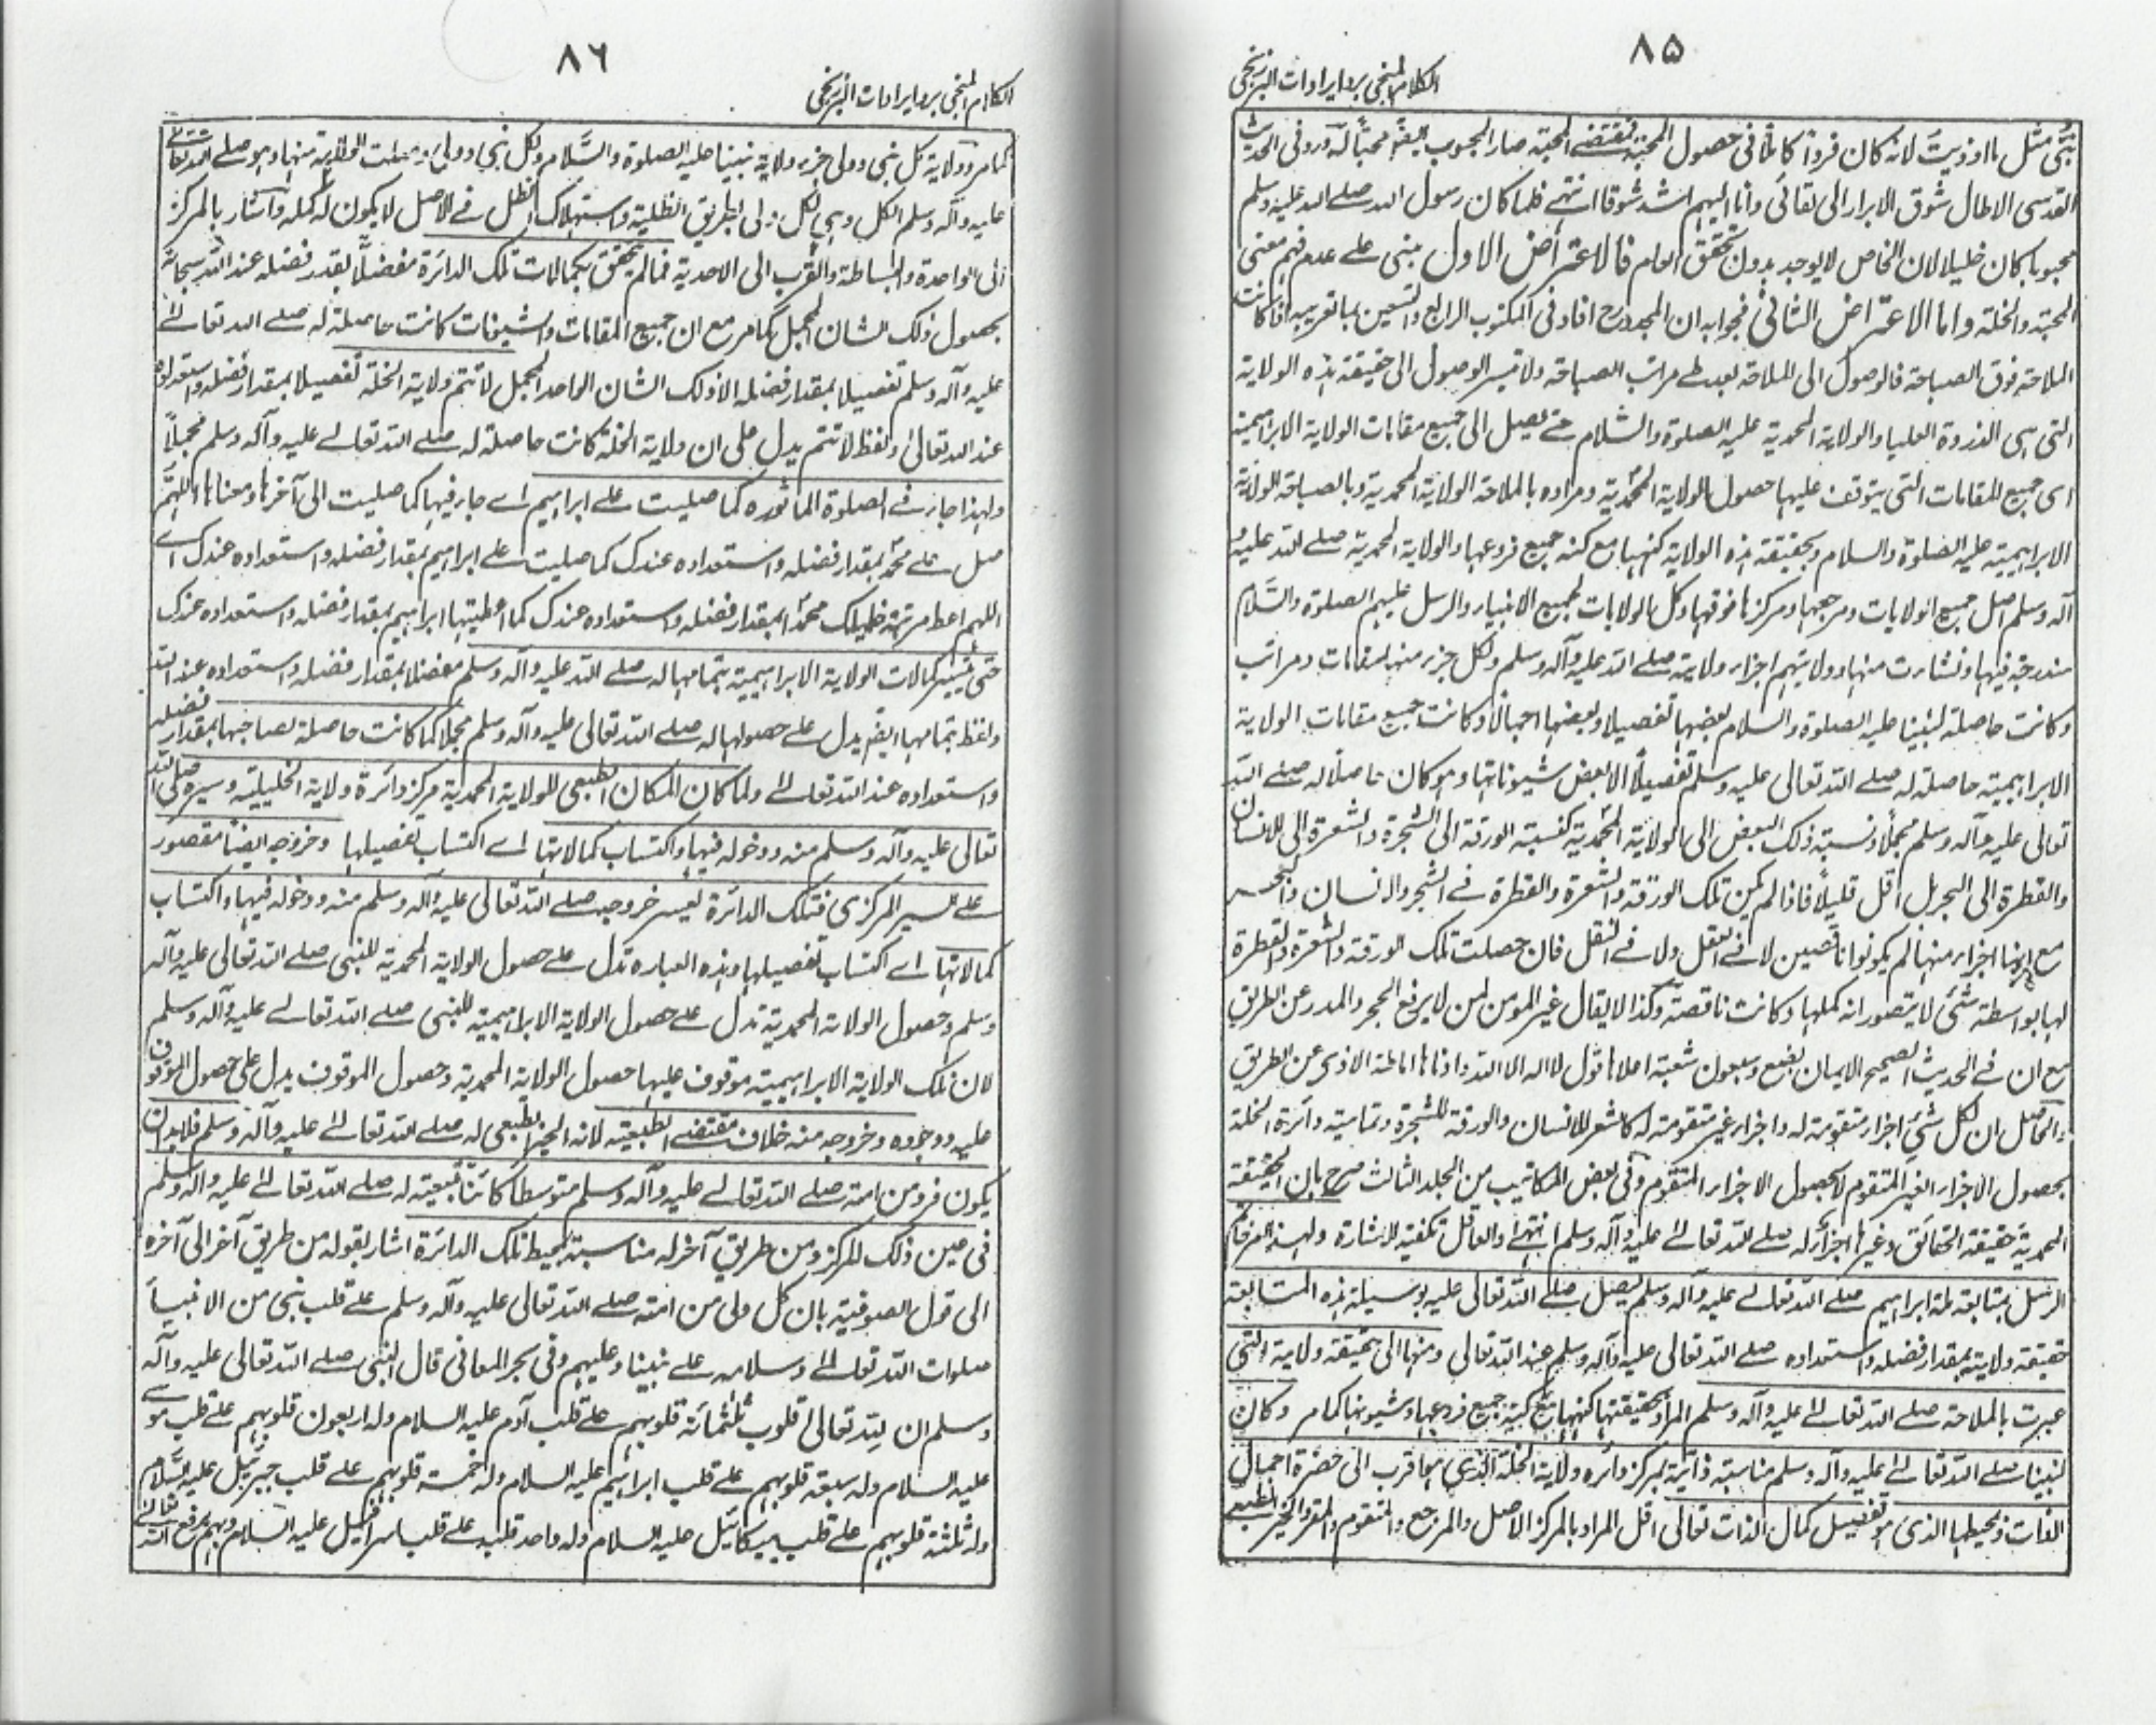 ٨٥
الكلام المنجي برد ايرادات البرزنجي
نبي مثل ما اوذيت لانه كان فردا كاملا في حصول المحبة فمقتضى المحبة صار المحبوب ايضا محبا له وروى في الحديث
القدسي الا طال شوق الابرار الى لقائي وانا اليهم اشد شوقا انتهى فلما كان رسول الله صلى الله عليه وسلم
محبوبا كان خليلا لان الخاص لا يوجد بدون تحقق العام فالاعتراض الاول مبني على عدم فهم معنى
المحبة والخلة واما الاعتراض الثاني فجوابه ان المجدد رح افاد في المكتوب الرابع والتسعين بما تقريبه اذا كانت
الملاحة فوق الصباحة فالوصول الى الملاحة بعد طے مراتب الصباحة ولا تيسر الوصول الى حقيقة هذه الولاية
التي هي الذروة العليا والولاية المحمدية عليه الصلوة والسلام حتے يصل الى جميع مقامات الولاية الابراهيمية
اى جميع المقامات التي يتوقف عليها حصول الولاية المحمدية ومراده بالملاحة الولاية المحمدية وبالصباحة الولاية
الابراهيمية عليه الصلوة والسلام وبحقيقة هذه الولاية كنهها مع كنه جميع فروعها والولاية المحمدية صلے الله عليه و
آله وسلم اصل جميع الولايات ومرجعها ومركزها فوقها وكل الولايات لجميع الانبياء والرسل عليهم الصلوة والسلام
مندرجة فيها ونشارت منها وولايتهم اجزاء ولايته صلے الله عليه وآله وسلم ولكل جزء منها مقامات ومراتب
وكانت حاصلة لنبينا عليه الصلوة والسلام بعضها تفصيلا وبعضها اجمالا وكانت جميع مقامات الولاية
الابراهيمية حاصلة له صلے الله تعالى عليه وسلم تفصيلا الا بعض شيوناتها وهو كان حاصلا له صلے الله
تعالى عليه وآله وسلم مجملا ونسبة ذلك البعض الى الولاية المحمدية كنسبة الورقة الى الشجرة والشعرة الى الانسان
والقطرة الى البحر بل اقل قليلا فاذا لم يكن تلك الورقة والشعرة والقطرة فے الشجر والانسان والبحر
مع كونها اجزاء منها لم يكونوا ناقصين لا فے العقل ولا فے النقل فان حصلت تلك الورقة والشعرة والقطرة
لها بواسطة شئ لا يتصور انه كملها وكانت ناقصة وكذا لا يقال غير المومن لمن لا يرفع الحجر والمدر عن الطريق
مع ان فے الحديث الصحيح الايمان بضع وسبعون شعبة اعلاها قول لا اله الا الله وادناها اماطة الاذى عن الطريق
والحاصل ان لكل شئ اجزاء متقومة له واجزاء غير متقومة له كالشعر للانسان والورقة للشجرة وتمامية دائرة الخلة
بحصول الاجزاء الغير المتقوم لا بحصول الاجزاء المتقوم وفي بعض المكاتيب من الجلد الثالث صرح بان الحقيقة
المحمدية حقيقة الحقائق وغيرها اجزائه له صلے الله تعالے عليه وآله وسلم انتهے والعاقل تكفيه الاشارة ولهذا امر خاتم
الرسل بمتابعة ملة ابراهيم صلے الله تعالے عليه وآله وسلم ليصل صلے الله تعالى عليه بوسيلة هذه المتابعة
حقيقة ولايته بمقدار فضله واستعداده صلے الله تعالى عليه وآله وسلم عند الله تعالى ومنها الى حقيقة ولايته التي
عبرت بالملاحة صلے الله تعالے عليه وآله وسلم المراد بحقيقتها كنهها مع كنه جميع فروعها وشيونها كما مر وكان
لنبينا صلے الله تعالے عليه وآله وسلم مناسبة ذاتية بمركز دائره ولاية الخلة الذي هو اقرب الى حضرة اجمال
الذات ومحيطها الذي هو تفصيل كمال الذات تعالى اقل المراد بالمركز الاصل والمرجع والمتقوم والمقر والحيز الطبعي
٨٦
الكلام المنجي برد ايرادات البرزنجي
كما مر وولاية كل نبي وولي جزء ولاية نبينا عليه الصلوة والسلام ولكل نبي وولي وصلت الولاية منها وهو صلے الله تعالى
عليه وآله وسلم الكل وهي الكل ولى بطريق الظلية واستهلاك الظل فے الاصل لا يكون له كمله واشار بالمركز
الى الواحدة والبساطة والقرب الى الاحدية فما لم يتحقق بكمالات تلك الدائرة مفضلا بقدر فضله عند الله سبحانه
بحصول ذلك الشان المجمل كما مر مع ان جميع المقامات والشيونات كانت حاصلة له صلے الله تعالے
عليه وآله وسلم تفصيلا بمقدار فضله الا ذلك الشان الواحد المجمل لا تتم ولاية الخلة تفصيلا بمقدار فضله واستعداده
عند الله تعالى ولفظ لا تتم يدل على ان ولاية الخلة كانت حاصلة له صلے الله تعالے عليه وآله وسلم مجملا
ولهذا جاز فے الصلوة الماثوره كما صليت علے ابراهيم اے جاء فيها كما صليت الى آخرها ومعناها اللهم
صل علے محمد بمقدار فضله واستعداده عندك كما صليت علے ابراهيم بمقدار فضله واستعداده عندك اے
اللهم اعط مرتبة خليلك محمدا بمقدار فضله واستعداده عندك كما اعطيتها ابراهيم بمقدار فضله واستعداده عندك
حتى تيسر كمالات الولاية الابراهيمية بتمامها له صلے الله عليه وآله وسلم مفصلا بمقدار فضله واستعداده عند الله
ولفظ بتمامها ايضا يدل علے حصولها له صلے الله تعالى عليه وآله وسلم مجملا كما كانت حاصلة لصاحبها بمقدار فضله
واستعداده عند الله تعالے ولما كان المكان الطبعي للولاية المحمدية مركز دائرة ولاية الخليلية وسيره صلى الله
تعالى عليه وآله وسلم منه ودخوله فيها واكتساب كمالاتها اے اكتساب تفصيلها وخروجه ايضا مقصور
علے السير المركزي فتلك الدائرة ليسر خروجه صلے الله تعالى عليه وآله وسلم منه ودخوله فيها واكتساب
كمالاتها اے اكتساب تفصيلها وهذه العباره تدل علے حصول الولاية المحمدية للنبي صلے الله تعالى عليه وآله
وسلم وحصول الولاية المحمدية تدل علے حصول الولاية الابراهيمية للنبي صلے الله تعالے عليه وآله وسلم
لان تلك الولاية الابراهيمية موقوف عليها حصول الولاية المحمدية وحصول الموقوف يدل على حصول الموقوف
عليه ووجوده وخروجه منه خلاف مقتضے الطبيعة لانه الحيز الطبعي له صلے الله تعالے عليه وآله وسلم فلابد ان
يكون فرد من امته صلے الله تعالے عليه وآله وسلم متوسطا كائنا بتبعيته له صلے الله تعالے عليه وآله وسلم
في عين ذلك المركز ومن طريق آخر له مناسبة بمحيط تلك الدائرة اشار بقوله من طريق آخر الى آخره
الى قول الصوفية بان كل ولى من امته صلے الله تعالى عليه وآله وسلم علے قلب نبي من الانبياء
صلوات الله تعالے وسلامه علے نبينا وعليهم وفي بحر المعاني قال النبي صلے الله تعالى عليه وآله
وسلم ان لله تعالى قلوب ثلثمائة قلوبهم علے قلب آدم عليه السلام وله اربعون قلوبهم علے قلب موسے
عليه السلام وله سبعة قلوبهم علے قلب ابراهيم عليه السلام وله خمسة قلوبهم علے قلب جبرئيل عليه السلام
وله ثلثة قلوبهم علے قلب ميكائيل عليه السلام وله واحد قلبه علے قلب اسرافيل عليه السلام وبهم يرفع الله تعالے